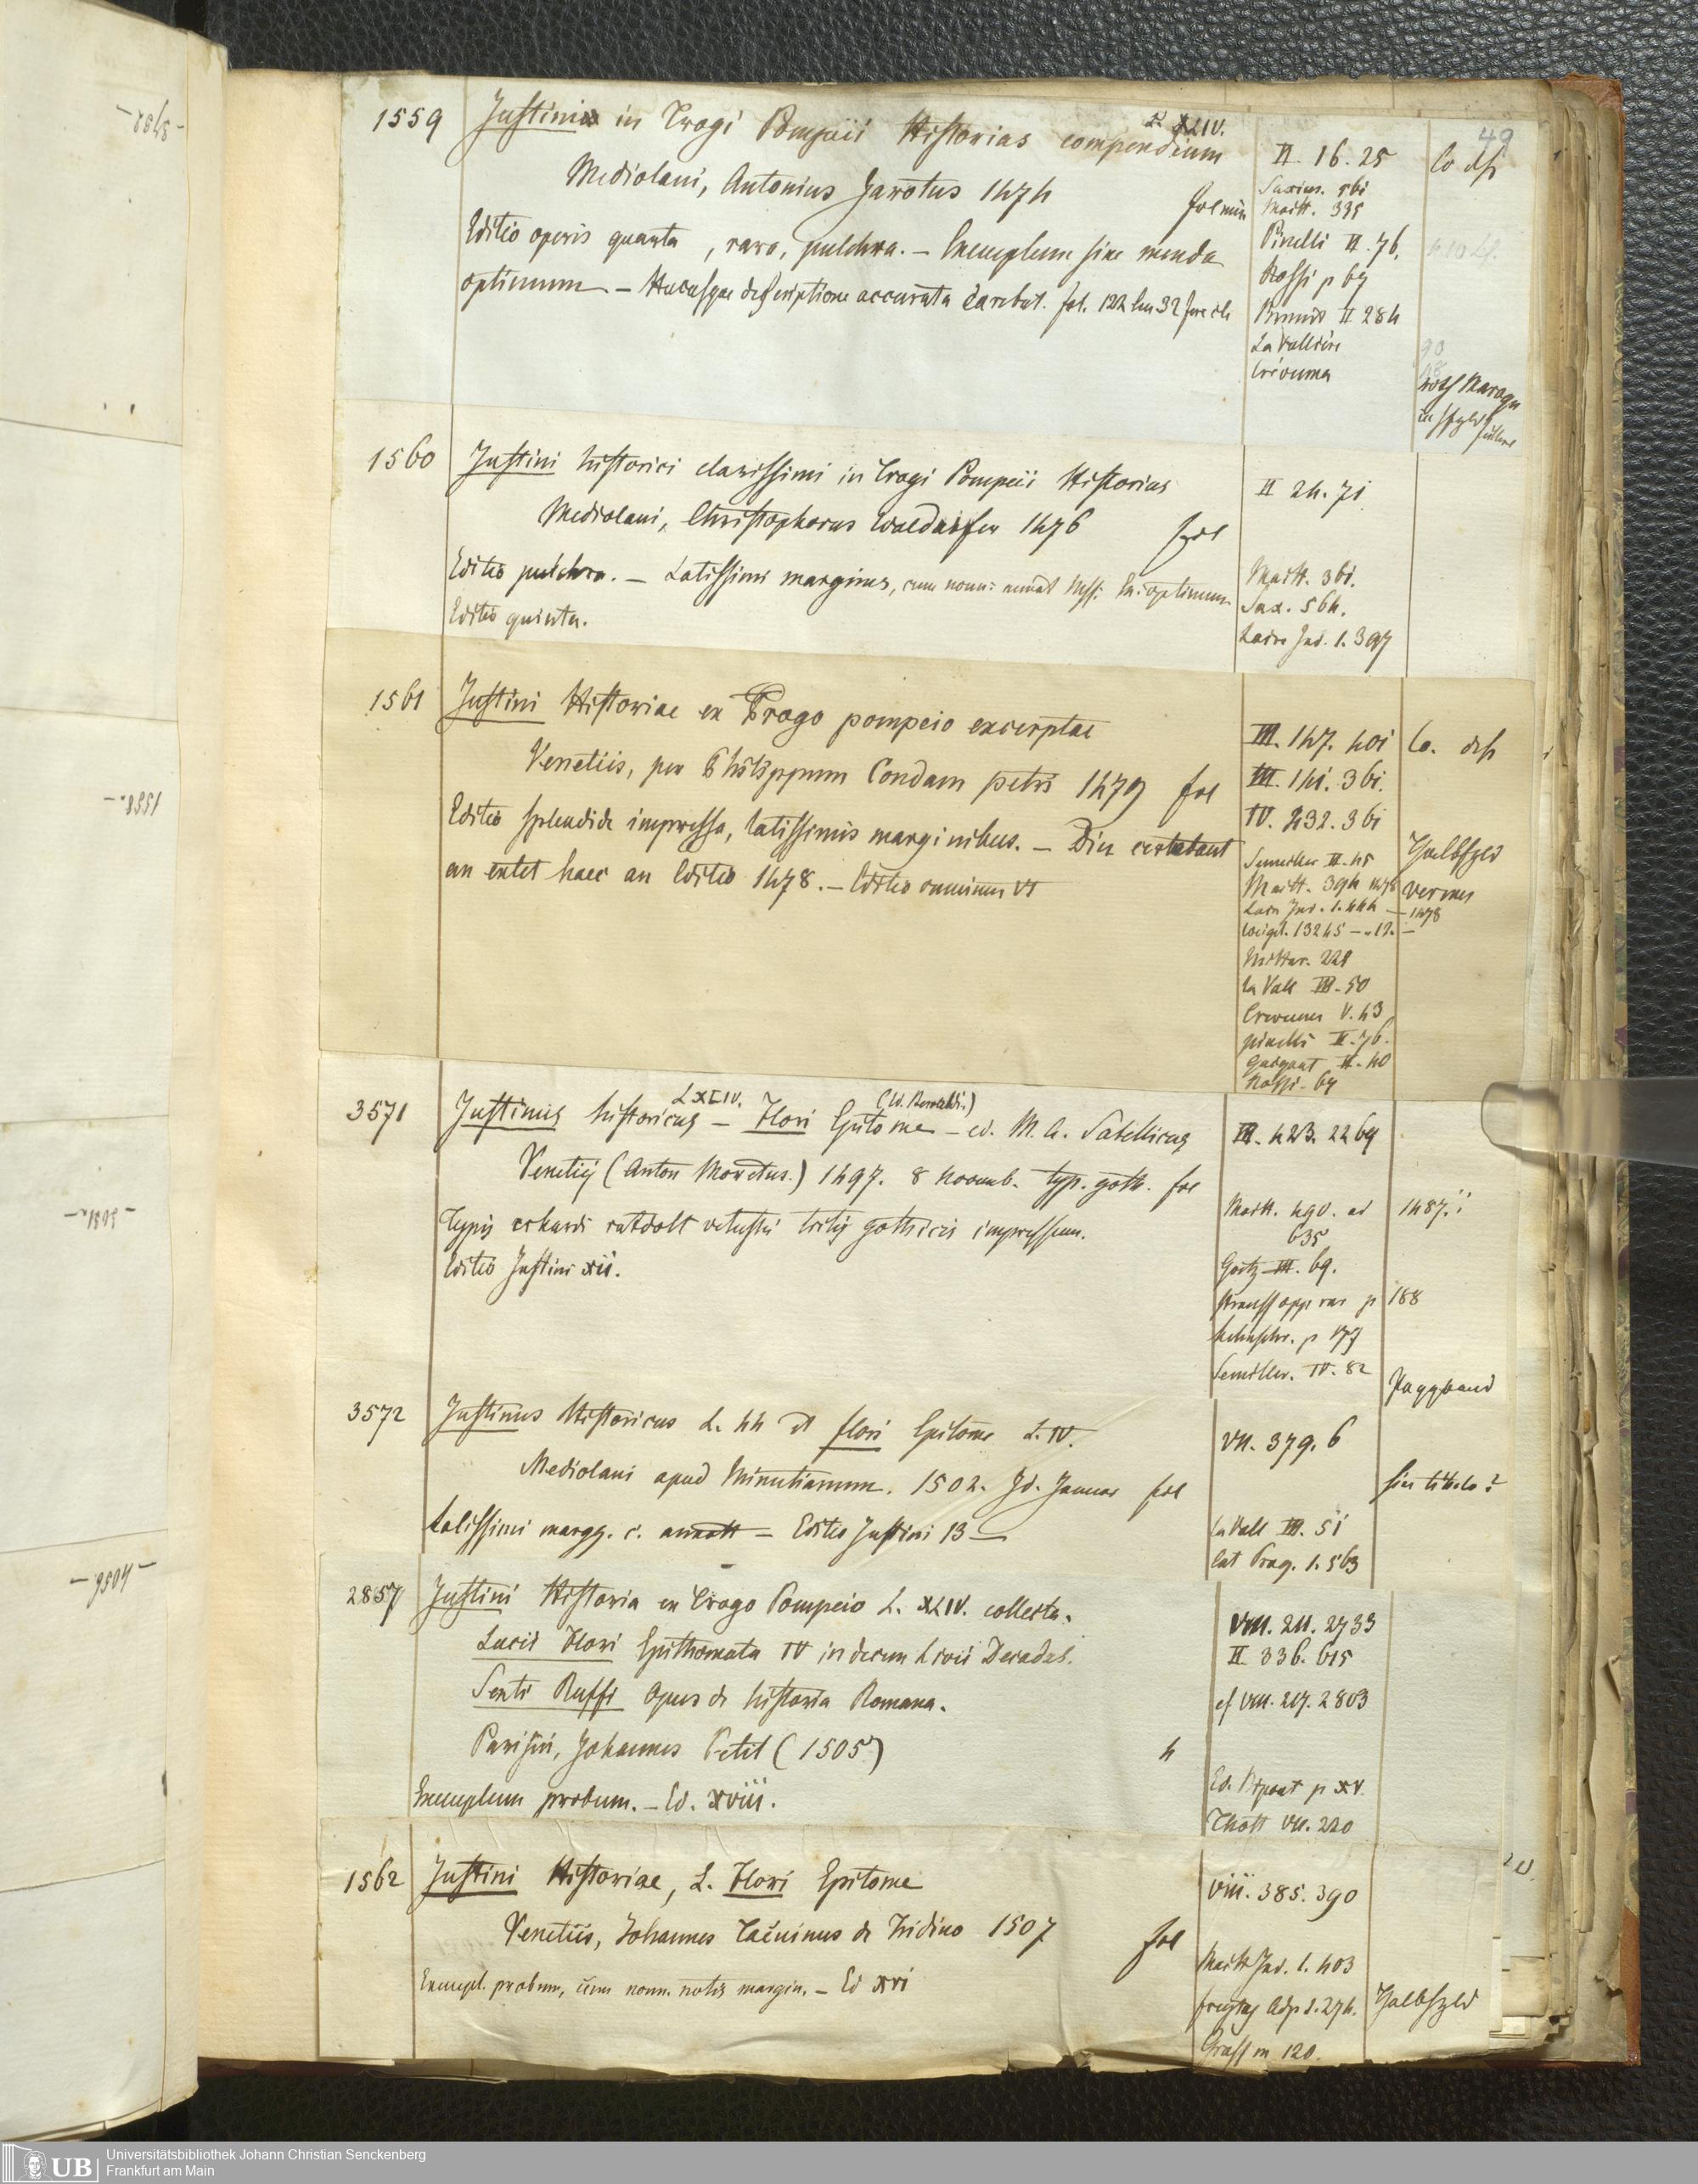 49
1559
Justini in Trogi Pompeii Historias compendium
L XLIV.
Mediolani, Antonius Zarotus 1474
fol min
Editio operis quarta, rara, pulchra. – Exemplum sine menda
optimum – Hucusque descriptione accurata carebat. fol. 122
II. 16. 25
Maitt. 335
Pinelli II. 76.
Rossi p 67
Brunet II 284
La Valliere
Crevenna
Co
roth Maroqu
1560
Justini historici clarissimi in Trogi Pompeii Historias
Mediolani, Christophorus Waldarfer 1476
fol
Editio pulchra. – Latissimi margines, cum nonn: annot Mss: Ex: optimum
Editio quinta.
II 24. 71
Maitt. 361.
Sax. 564.
Laire Ind. 1. 397
1561
Justini Historiae ex Trogo pompeio excerptae
Venetiis, per Philippum Condam petri 1479 fol
Editio splendide impressa, latissimis marginibus. – Diu certabant
an extet haec an Editio 1478. – Editio omnium VI
III. 147. 401
III. 141. 361.
IV. 432. 361
Semiller II. 45
Maitt. 394 1478
Laire Ind. 1. 444 – 1478
Weigel. 13245
Mittar. 228
la Vall III. 50
Crevenna V. 43
pinelli II. 76.
Gaignat II. 40
Rossi. 67
Co.
Halbfrzbd
3571
Justinus historicus – Flori Epitome – ed. M. A. Sabellicus
L XLIV.
(Ed. Beroaldi.)
Venetiis (Anton Moretus.) 1497. 8 Novemb. typ. goth. fol
Typis erhardi ratdolt vetustis tritis gothicis impressum.
Editio Justini xii.
III. 423. 2269
Maitt. 490. ad 1487.
635
Goetz III. 69.
Strauss opp rar p 188
helmschr. p 177
Semiller. IV. 82
Pappband
3572
Justinus Historicus L. 44 et flori Epitome L. IV.
Mediolani apud Minutianum. 1502. Id. Januar fol
Latissimi margg. c. annott – Editio Justini 13 –
VII. 379. 6
sin titulo?
la Vall III. 51
Cat Prag. 1. 563
2857
Justini Historia ex Trogo Pompeio L. XLIV. collecta.
Lucii Flori Epithomata IV in decem Livii Decadas.
Sexti Ruffi Opus de historia Romana.
Parisiis, Johannes Petit (1505?)
4
Exemplum probum. – Ed. xviii.
VIII. 211. 2733
II 336. 615
cf VIII. 217. 2803
Ed. Bipont p XV.
Thott VII. 220
1562
Justini Historiae, L. Flori Epitome
Venetiis, Johannes Tacuinus de Tridino 1507
fol
Exempl. probum, cum nonn. notis margin. – Ed xvi
VIII. 385. 390
Maitt Ind. 1. 403
freytag Adp 1. 274.
Grass m 120.
Halbfrzbd
UB
Universitätsbibliothek Johann Christian Senckenberg
Frankfurt am Main